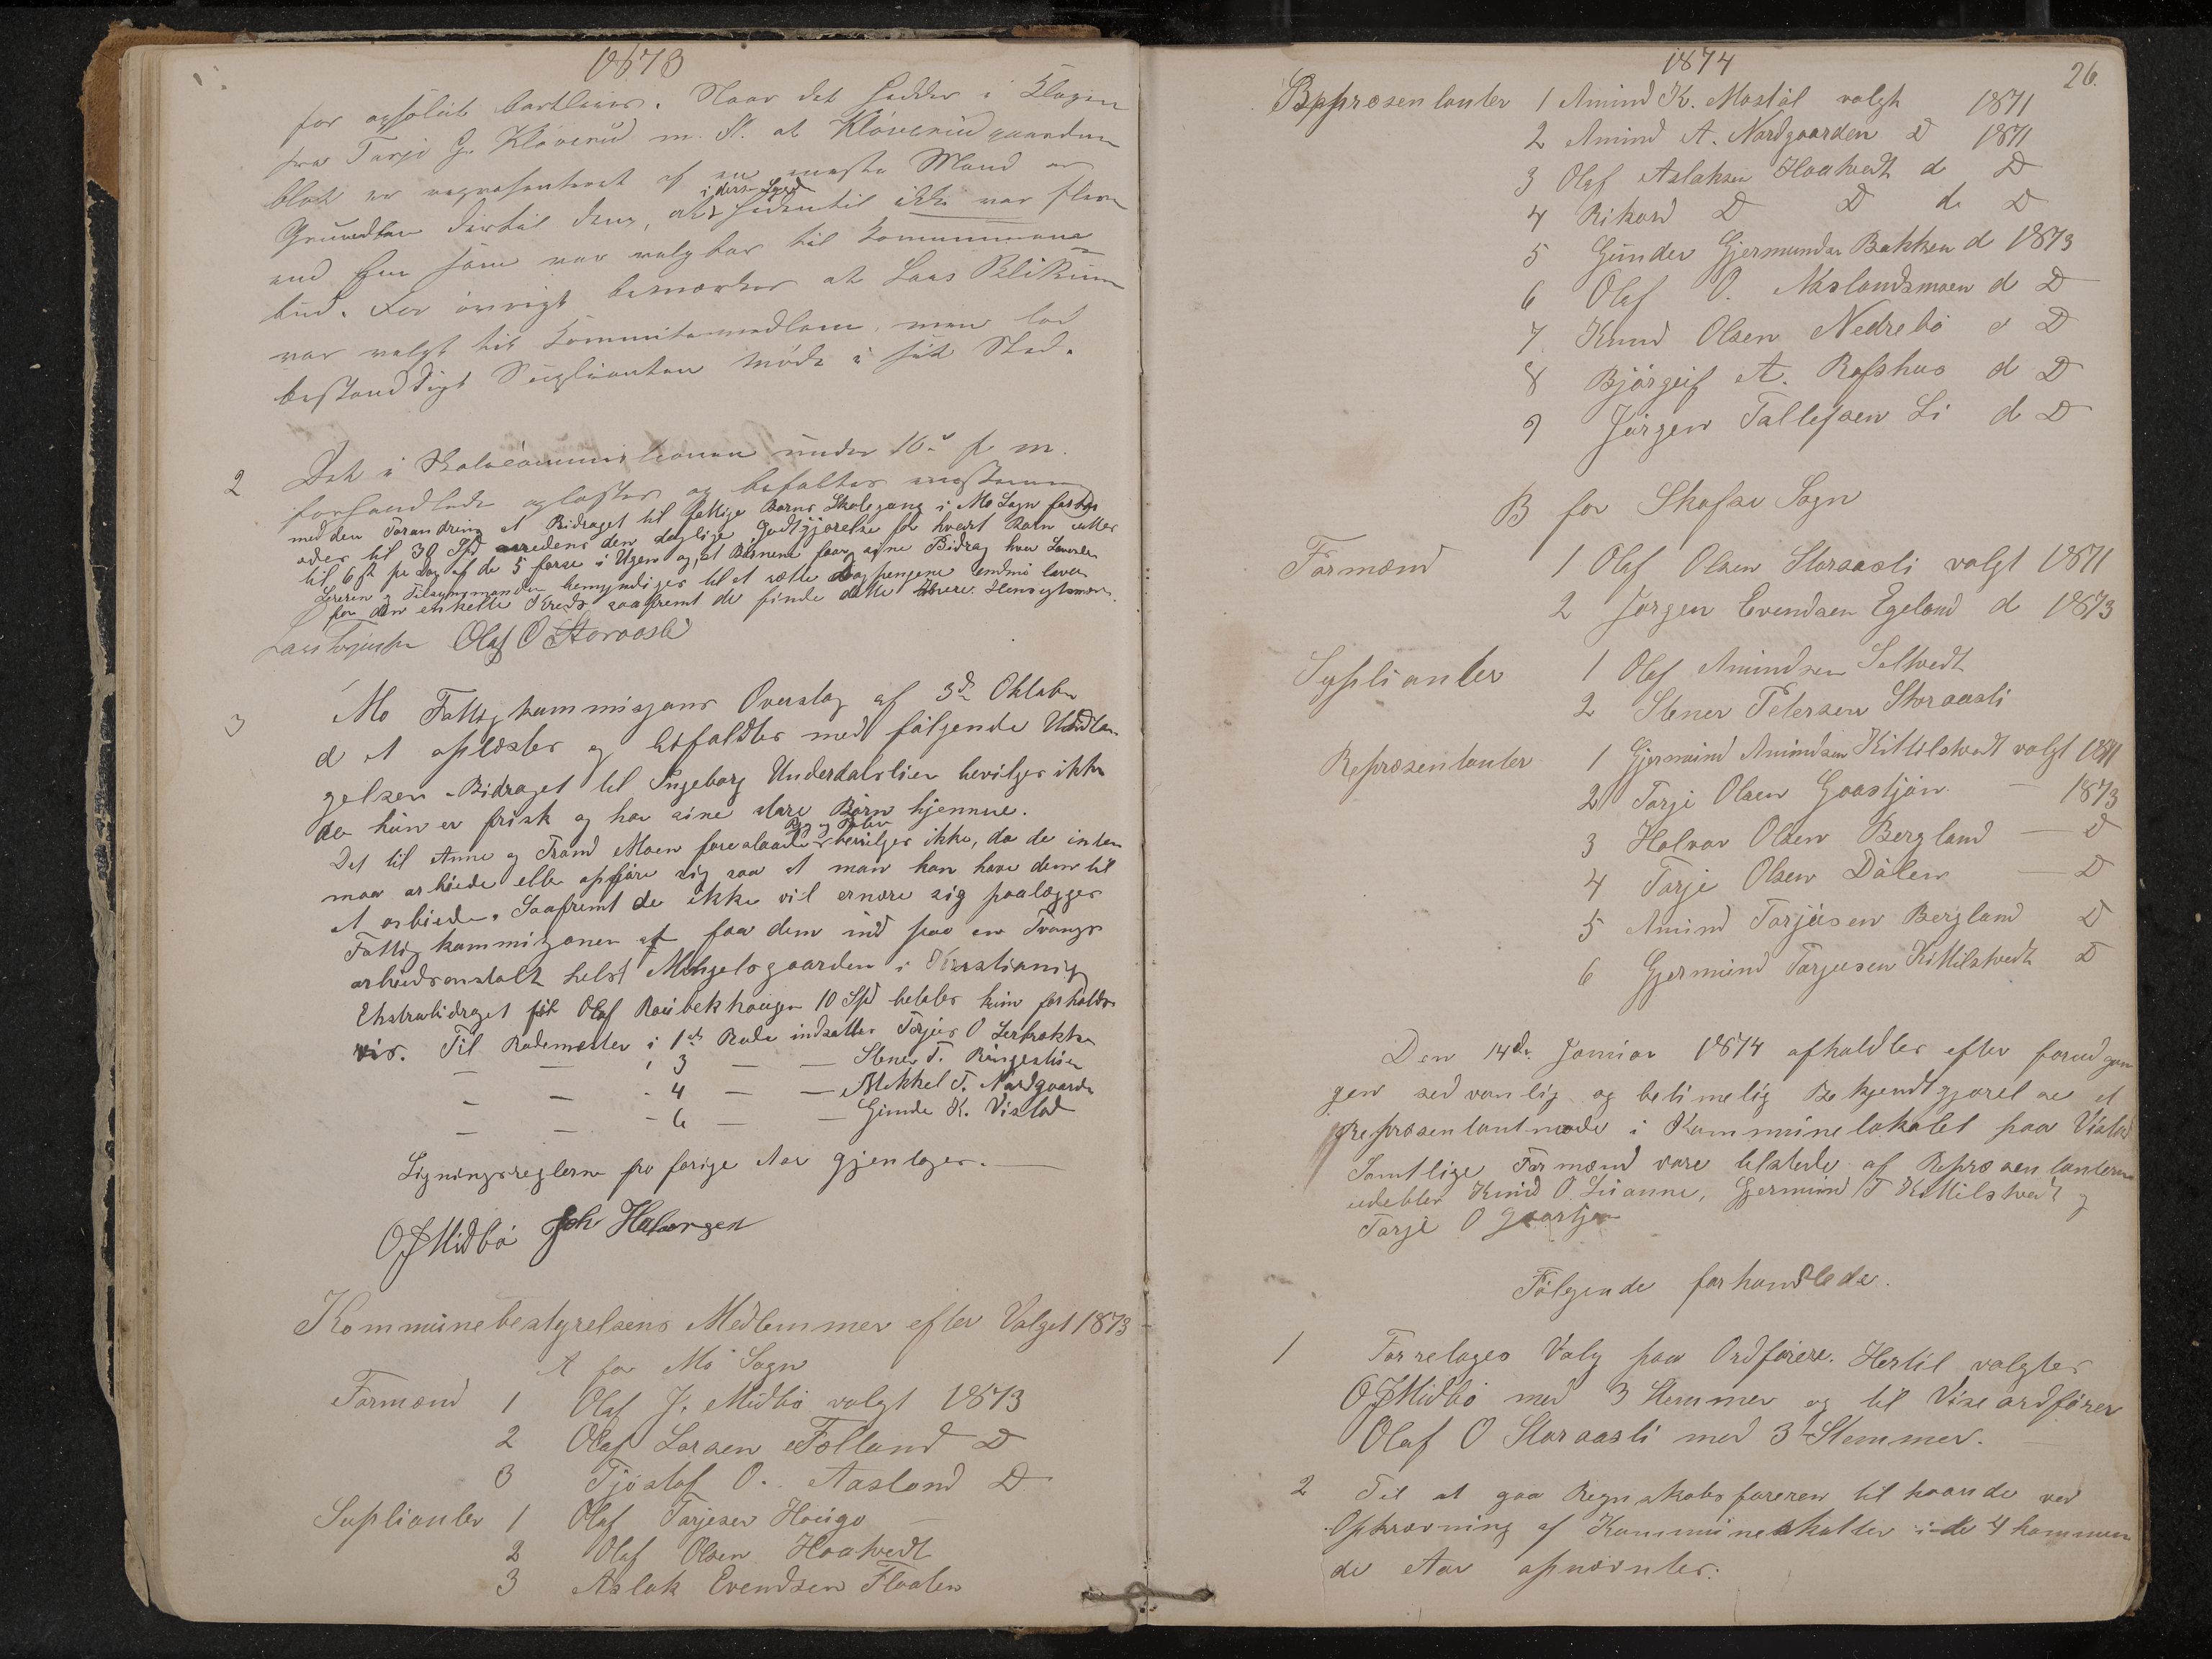 1873
for absolut                . Naar det hedder i Klagen
fra Tarje G. Kloverud m. fl. at Kloverudgaarden
blot er repræsenteret af en eneste Mand er
i dette Sogn
Grunden dertil den, at hidentil ikke var flere
end Een som var valgbar til Kommunen
bud. For øvrigt bemærkes at Laas
var valgt til Kommitemedlem, men lod
bestandigt Suplianten møde i sit Sted.
2 Det i Skolecommisionen under 16de f. m.
forhandlede oplæstes og befaltes
med den Forandring at Bidraget til fattige Børns Skolegang i Mo Sogn
til 30 Spd den daglige Godtgjørelse for hvert Barn
til 6 pr Dag af de 5 første i Ugen og at Børnene faar sine Bidrag hver
Læreren og Tilsynsmanden bemyndiges til at sætte Dagpengene endnu lavere
for den enkelte Kreds saafremt de finde dette
Olaf O Storaasli
3 Mo Fattigkommisjons Overslag af 3de Oktober
d A oplæstes og bifaldtes med følgende Undta-
gelser. Bidraget til Ingeborg Underdalslien bevilges ikke
da hun er frisk og har sine store Børn hjemme.
Det til Anne og Trond Moen foreslaaede bevilges ikke, da de enten
maa arbeide eller opføre sig saa at man kan have dem til
at arbeide. Saafremt de ikke vil ernære sig paalægges
Fattigkommisjonen at faa dem ind paa en Tvangs
arbeidsanstalt helst Mangelsgaarden i Kristiania
Ekstrabidraget til Olaf Raubekhaugen 10 Spd betales kun forholds-
vis. Til Rodemester i 1ste Rode indsattes Tarjus O
— — , 3 — — Stener T.
— — - 4 — — Mikkel T. Nordgaarden
— — - 6 — — Gunder K. Vistad
Ligningsreglerne fra forige Aar gjentages. —
OJMidbö Joh Halvorsen
Kommunebestyrelsens Medlemmer efter Valget 1873
A for Mo Sogn
Formænd 1 Olaf J. Midbö valgt 1873
2 Olaf Larsen Folland D
3 Tjöstaf O. Aasland D
Suplianter 1 Olaf Tarjesen Haugo —
2 Olaf Olsen Haatvedt
3 Aslak Evendsen Flaaten
1874
26.
Repræsentanter 1 Amind K. Mostöl valgt 1871
2 Amind A. Nordgaarden D 1871
3 Olaf Aslaksen Haatvedt d D
4 Rikard D D d D
5 Gunder Gjermundsen Bakken d 1873
6 Olaf O. Naslandsmoen d D
7. Knud Olsen Nedrebö d D
8 Björgulf A. Rafshus d D
9 Jörgen Tallefsen Li d D
B for Skafse Sogn
Formænd 1 Olaf Olsen Storaasli valgt 1871
2 Jorgen Evendsen Egeland d 1873
Suplianter 1 Olaf Amindsen Seltvedt
2 Stener Petersen Storaasli
Repræsentanter 1 Gjermund Amundsen Kittilstvedt valgt 1871
2 Tarje Olsen Gaastjön — 1873
3 Halvor Olsen Bergland — D
4 Tarje Olsen Dalen — D
5 Amind Tarjusen Bergland D
6 Gjermund Tarjusen Kittilstvedt D
Den 14de Januar 1874 afholdtes efter forudgaa
gen sedvanlig og betimelig Bekjendtgjørelse et
Repræsentantmøde i Kommunelokalet paa Vistad
Samtlige Formænd vare tilstede af Repræsentanterne
udebleve Knud O. Lianne, Gjermund T Kittilstvedt og
Tarje O Gaastjøn
Følgende forhandlede.
1 Forretoges Valg paa Ordførere. Hertil valgtes
OJMidbö med 3 Stemmer og til Viseordfører
Olaf O Storaasli med 3 Stemmer.
2 Til at gaa Regnskabsføreren til haande ved
Opkrævning af Kommuneskatter i de 4 kommen
de Aar opnævntes: